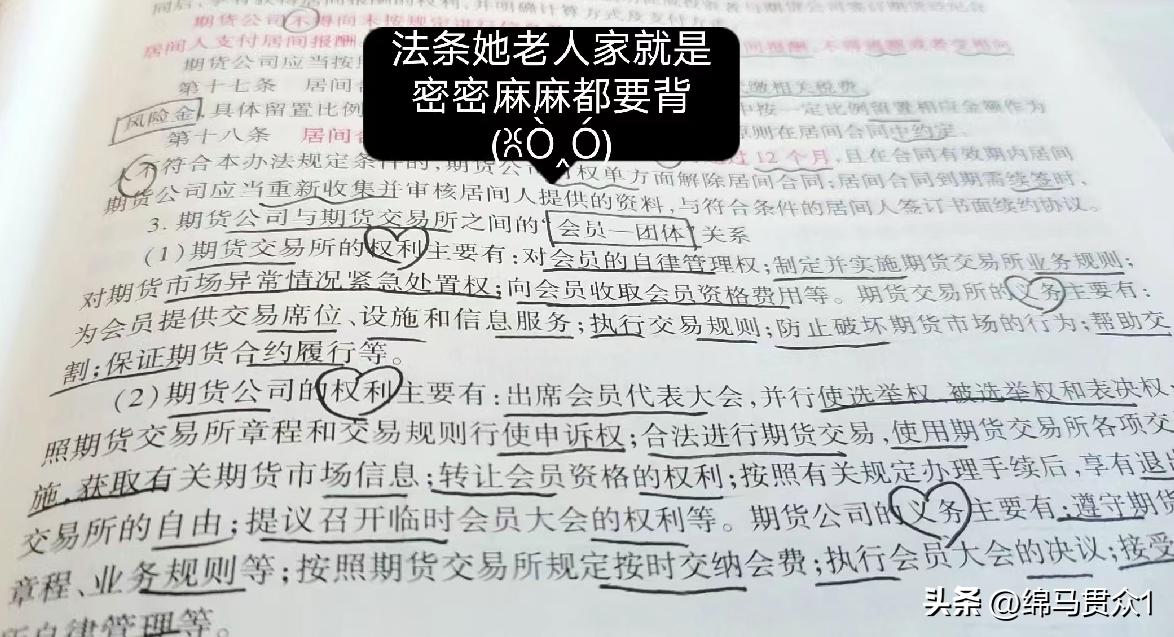 期货公司不得向未按规定进行
居间人支付居间报酬
期货公司应当按
第十七条 居间 缴相关税费
风险金,具体留置比例 中按一定比例留置相应金额作为
第十八条 居间 原则在居间合同中约定。
法条她老人家就是
密密麻麻都要背
不符合本办法规定条件的,期货公司 权单方面解除居间合同;居间合同到期需续签时,
过12个月,且在合同有效期内居间
期货公司应当重新收集并审核居间人提供的资料,与符合条件的居间人签订书面续约协议。
3. 期货公司与期货交易所之间的“会员—团体”关系
(1)期货交易所的权利主要有:对会员的自律管理权;制定并实施期货交易所业务规则;
对期货市场异常情况紧急处置权;向会员收取会员资格费用等。期货交易所的义务主要有:
为会员提供交易席位、设施和信息服务;执行交易规则;防止破坏期货市场的行为;帮助交
割;保证期货合约履行等。
(2)期货公司的权利主要有:出席会员代表大会,并行使选举权、被选举权和表决权;
照期货交易所章程和交易规则行使申诉权;合法进行期货交易,使用期货交易所各项交
施,获取有关期货市场信息;转让会员资格的权利;按照有关规定办理手续后,享有退出
交易所的自由;提议召开临时会员大会的权利等。期货公司的义务主要有:遵守期货
章程、业务规则等;按照期货交易所规定按时交纳会费;执行会员大会的决议;接受
所自律管理等。
头条 @绵马贯众1